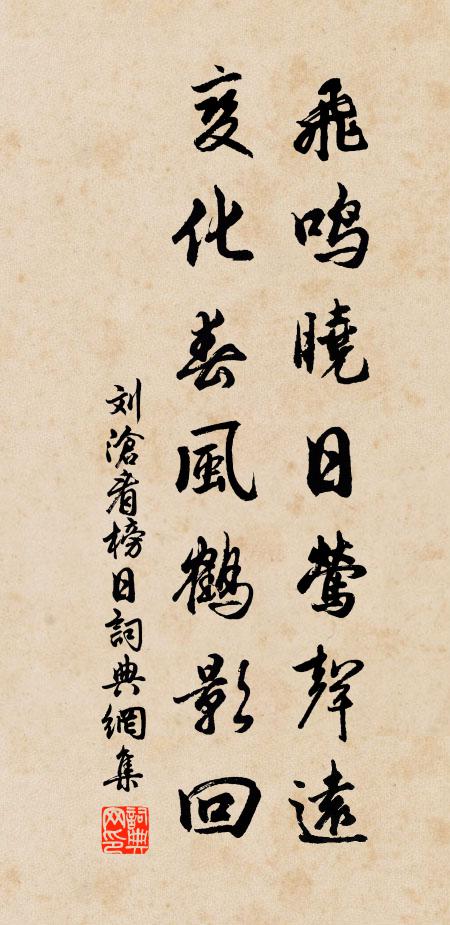 飛鳴曉日鶯聲遠
变化春風鶴影回
刘滄看榜日詞典網集
詞典
网印